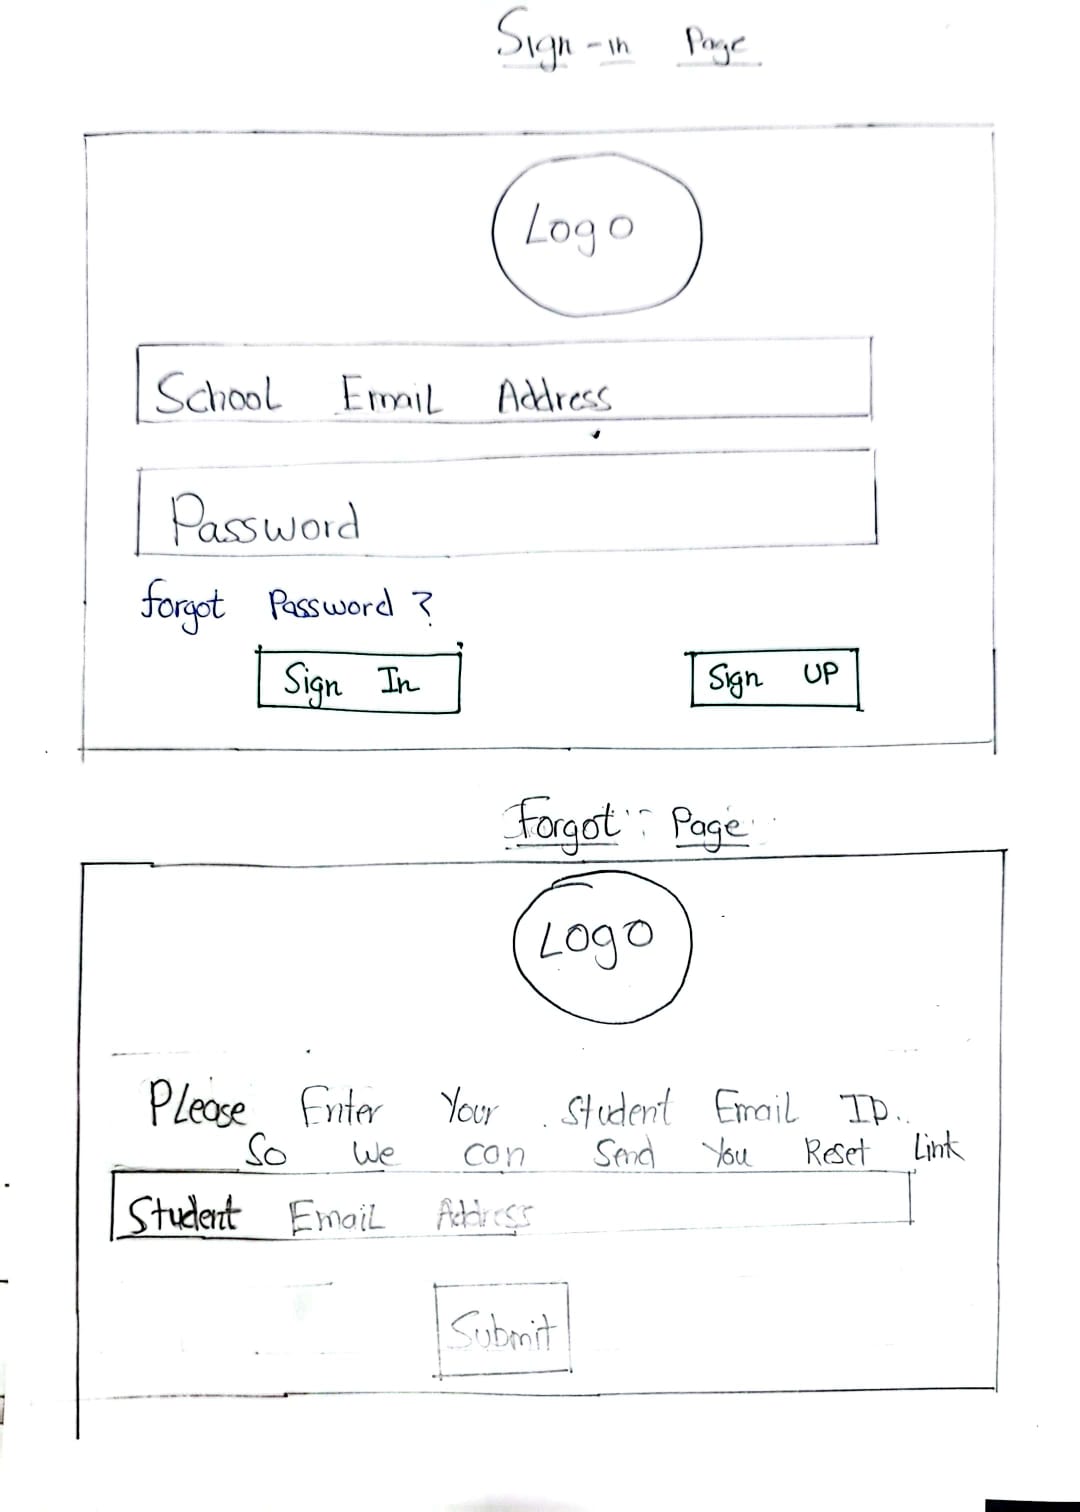 Sign-in Page
Logo
School Email Address
Password
forgot Password ?
Sign In
Sign UP
Forgot Page
Logo
Please Enter Your Student Email ID..
So We can Send You Reset Link
Student Email Address
Submit